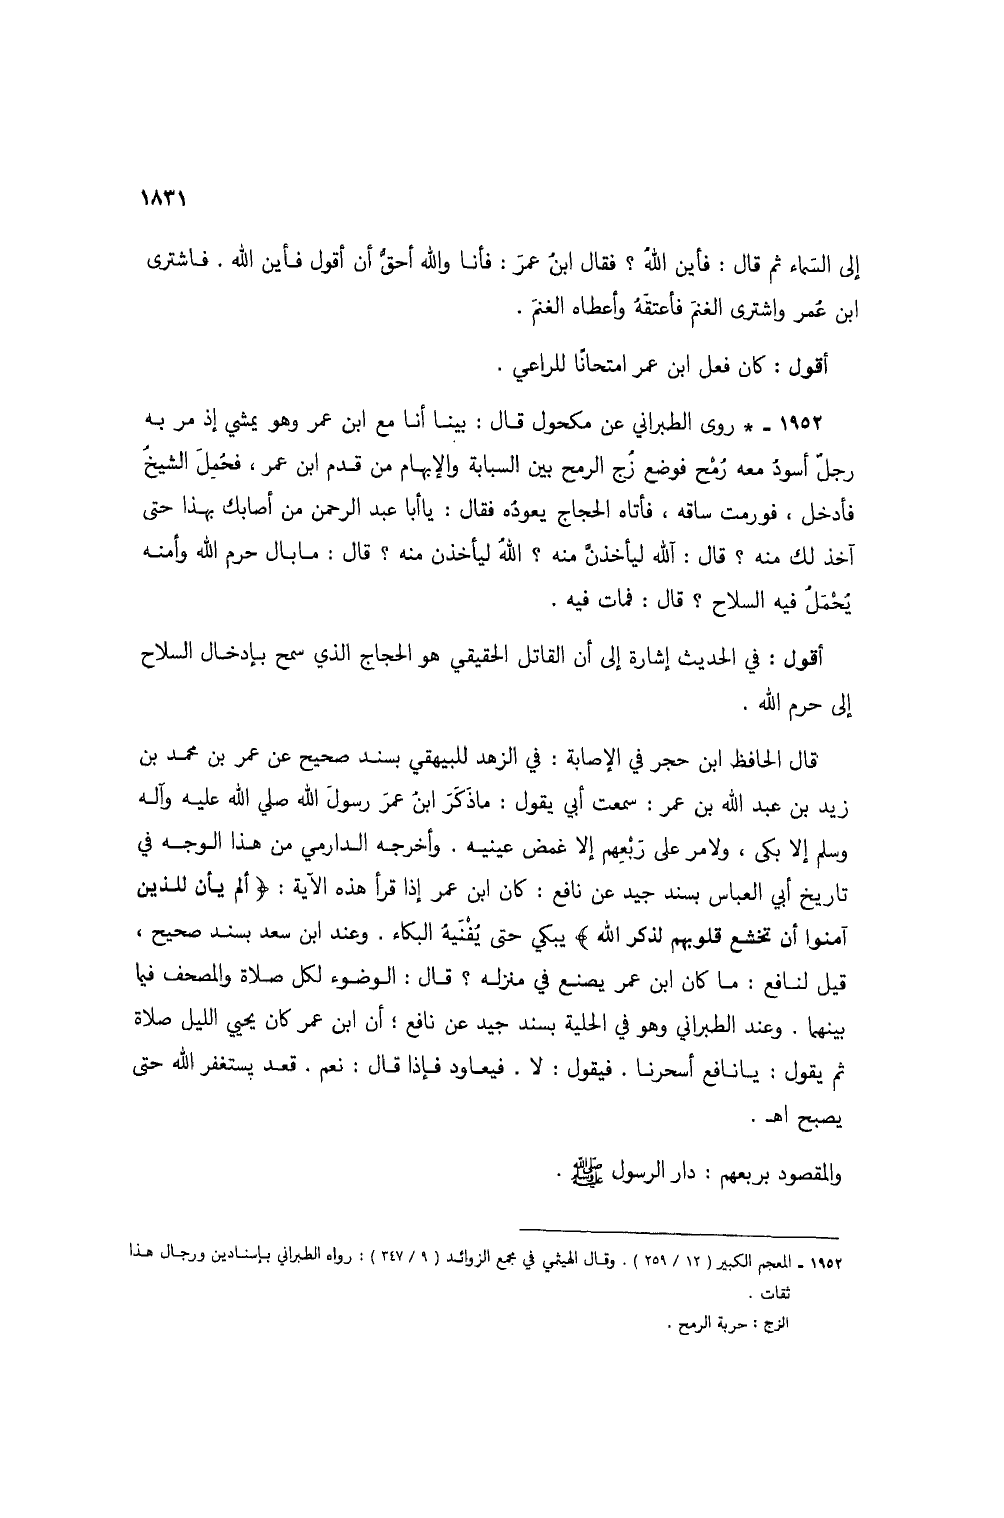 ١٨٣١
إلى السَماء ثم قال : فأين اللهُ ؟ فقال ابنُ عمرَ : فأنـا والله أحقُّ أن أقول فـأين الله . فـاشترى
ابن عُمر واشترى الغنمَ فأعتقَهُ وأعطاه الغنمَ .
أقول : كان فعل ابن عمر امتحانًا للراعي .
١٩٥٢ ـ * روى الطبراني عن مكحول قـال : بينـا أنـا مع ابن عمر وهو يمشي إذ مر بـه
رجلٌ أسودُ معه رُمْح فوضع زُج الرمح بين السبابة والإبهام من قـدم ابن عمر ، فحُمِلَ الشيخُ
فأدخل ، فورمت ساقه ، فأتاه الحجاج يعودُه فقال : ياأبا عبد الرحمن من أصابك بهـذا حتى
آخذ لك منه ؟ قال : آلله ليأخذنَّ منه ؟ اللهُ ليأخذن منه ؟ قال : مـابال حرم الله وأمنـه
يُحْمَلُ فيه السلاح ؟ قال : فمات فيه .
أقول : في الحديث إشارة إلى أن القاتل الحقيقي هو الحجاج الذي سمح بـإدخـال السلاح
إلى حرم الله .
قال الحافظ ابن حجر في الإصابة : في الزهد للبيهقي بسنـد صحيح عن عمر بن محمـد بن
زيد بن عبد الله بن عمر : سمعت أبي يقول : ماذَكَرَ ابنُ عمَرَ رسولَ الله صلي الله عليـه وآلـه
وسلم إلا بكى ، ولامر على رَبْعِهم إلا غمض عينيـه . وأخرجـه الـدارمي من هـذا الـوجـه في
تاريخ أبي العباس بسند جيد عن نافع : كان ابن عمر إذا قرأ هذه الآية : ﴿ ألم يـأن للـذين
آمنوا أن تخشع قلوبهم لذكر الله ﴾ يبكي حتى يُفْنَيهُ البكاء . وعند ابن سعد بسنـد صحيح ،
قيل لنـافع : مـا كان ابن عمر يصنـع في منزلـه ؟ قـال : الـوضوء لكل صـلاة والمصحف فيما
بينهما . وعند الطبراني وهو في الحلية بسند جيد عن نافع ؛ أن ابن عمر كان يحيي الليل صلاة
ثم يقول : يـانـافع أسحرنـا . فيقول : لا . فيعـاود فـإذا قـال : نعم . قعـد يستغفر الله حتى
يصبح اهـ .
والمقصود بربعهم : دار الرسول ﷺ .
١٩٥٢ ـ المعجم الكبير ( ١٢ / ٢٥٩ ) . وقـال الهيثمي في مجمع الزوائـد ( ٩ / ٣٤٧ ) : رواه الطبراني بـإسنـادين ورجـال هـذا
ثقات .
الزج : حربة الرمح .